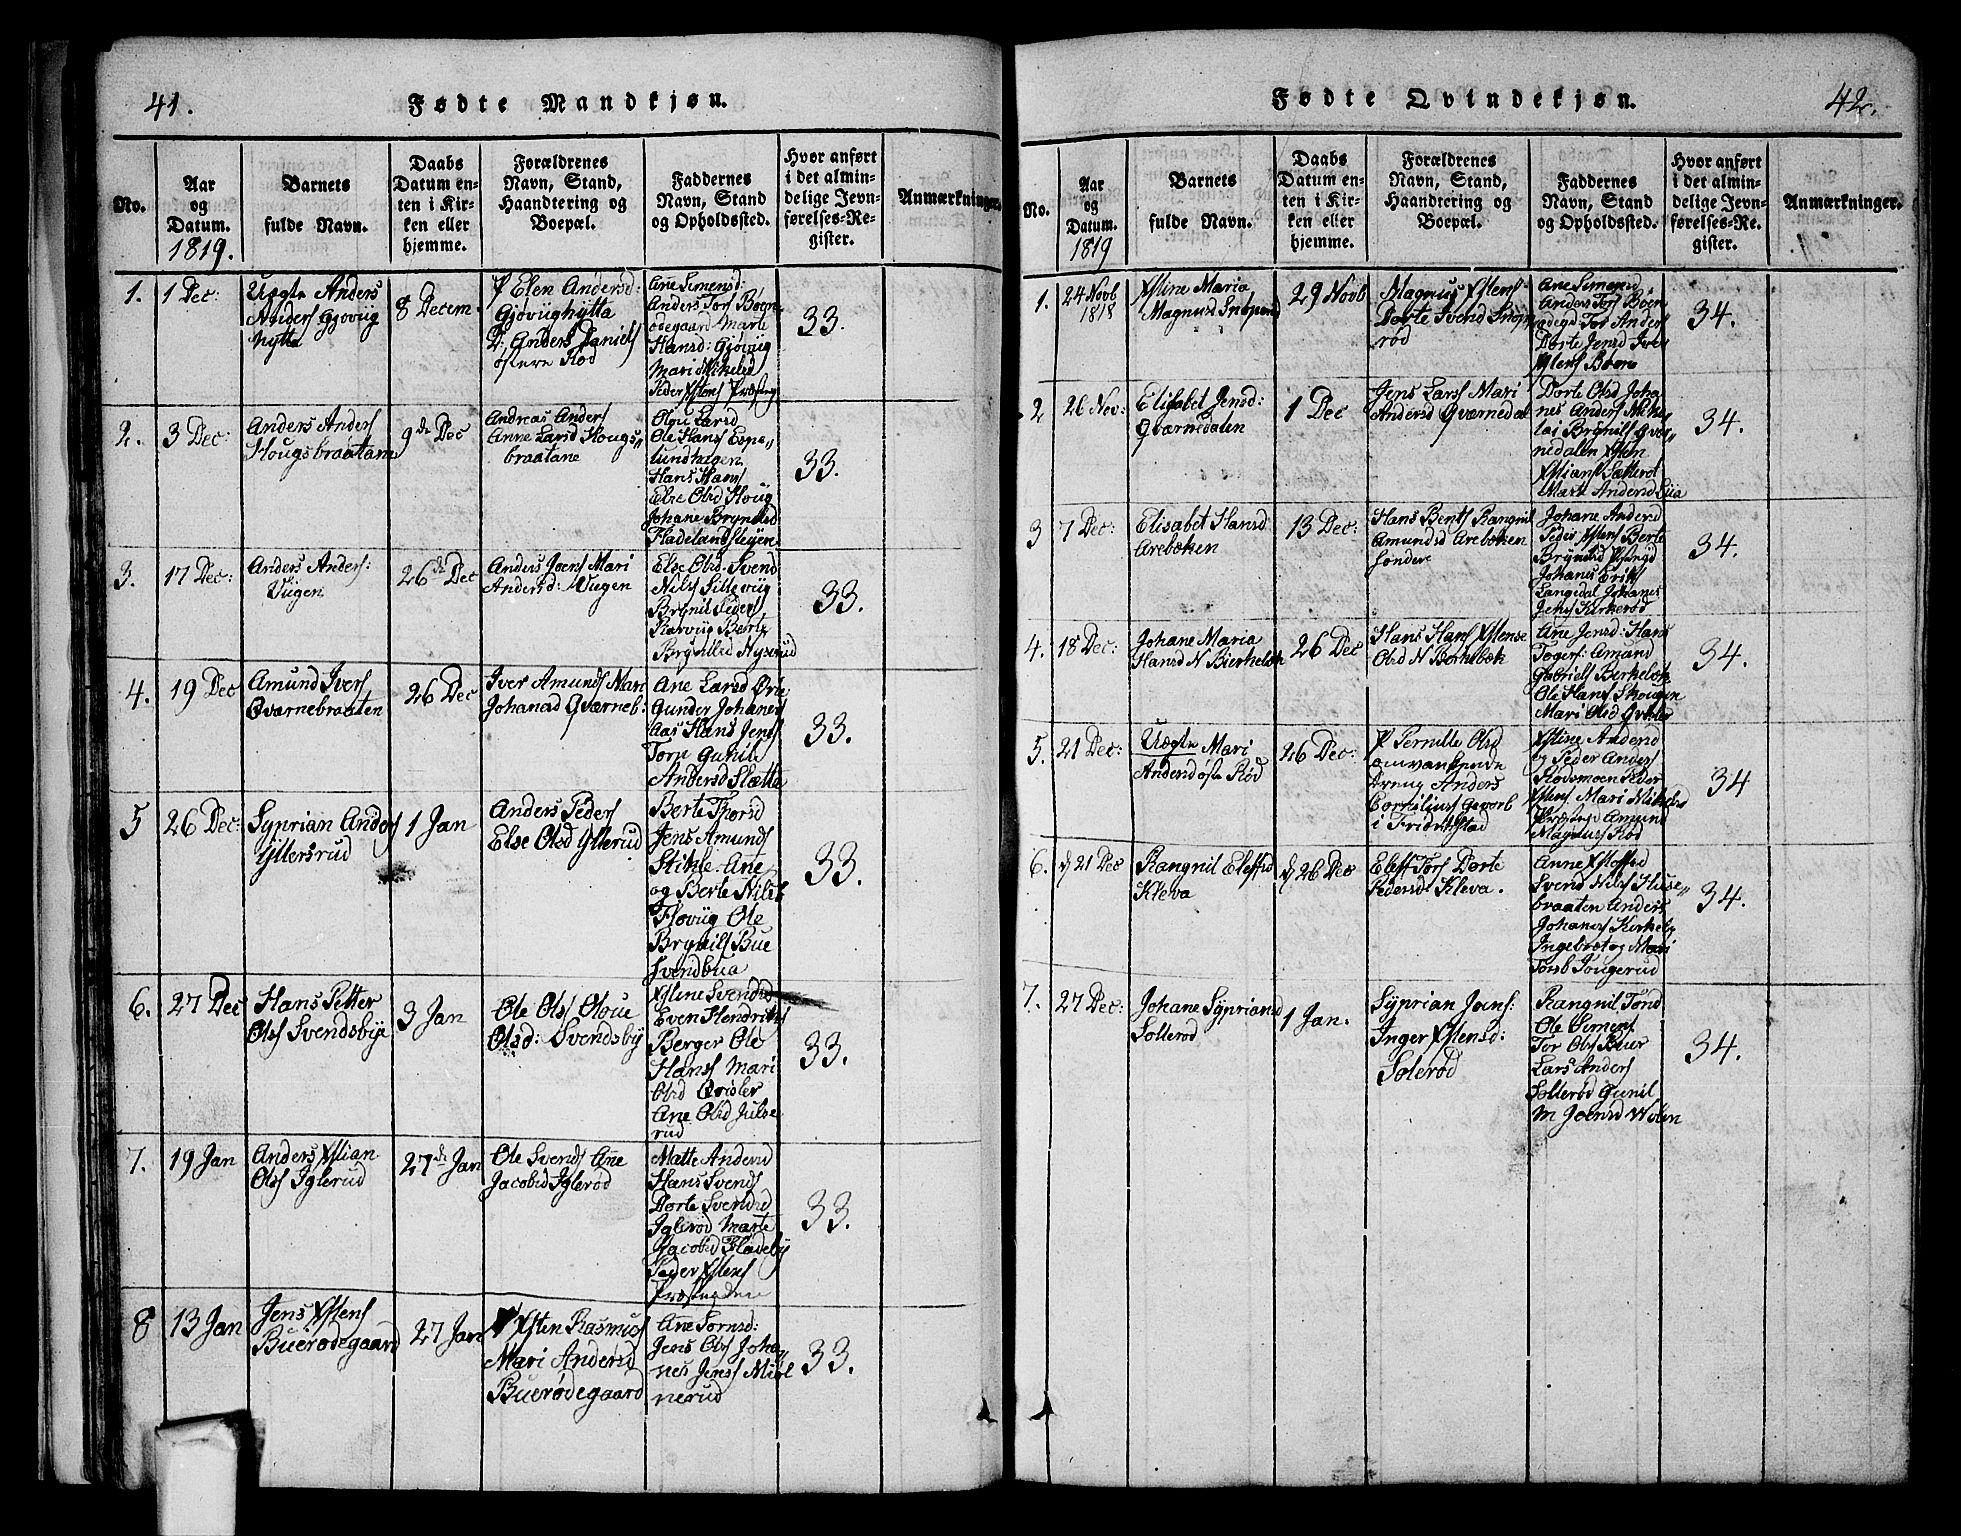 41.
Fødte Mandkjøn.
No.
Aar
og
Datum.
1819.
Barnets
fulde Navn.
Daabs
Datum en-
ten i Kir-
ken eller
hjemme.
Forældrenes
Navn, Stand,
Haandtering og
Boepæl.
Faddernes
Navn, Stand
og Opholdssted.
Hvor anført
i det almin-
delige Jevn-
førelses-Re-
gister.
Anmærkninger.
1.
1 Dec:
Uægte Anders
Anders Gjøvug
hytte
8 Decem
P Elen Andersd:
Gjøvughytta
D: Anders Daniels
østere Rød
Ane Simensd:
Anders Tors Bøen
Marte
Hansd: Gjøvug
Mari Mikelsd
Peder Xstens
33.
2.
3 Dec:
Anders Anders
Hougsbraatane
9de Dec
Andreas Anders
Anne Larsd Hougs„
braatane
Olgu Larsd
Ole Hans Espe„
lundhagen
Hans Hans
Else Olsd Houg
Johane Brynilsd
Fladelandslegen
33.
3.
17 Dec:
Anders Anders:
Viigen
26de Dec
Anders Joens Mari
Andersd: Viigen
Else Olsd: Svend
Nils Sillevüg
Brynil Peders
Rørvüg Berte
Brynilsd Hyserüd
33.
4.
19 Dec
Amund Ivers
Qvarnebraaten
26 Dec
Iver Amunds Mari
Johansd Qværneb:
Ane Larsd Ørle
Gunder Johanes
Aas Hans Jens
Torp Gunil
Andersd Slætta
33.
5
26 Dec:
Syprian Anders
Yttersrud
1 Jan
Anders Peders
Else Olsd Ytterud
Berte Thorsd
Jens Amunds
Stikle Ane
og Berte Nilsd
Flovüg Ole
Brynils Bue
Svendbua
33.
6.
27 Dec
Hans Petter
Ols Svendsbye
3 Jan
Ole Ols Oloue
Olsd: Svendsby
Xstine Svendsd
Even Hendriks
Berger Ole
Hans Mari
Olsd Qvisler
Ane Olsd Julse
rud
33.
7.
19 Jan
Anders Xstian
Ols Iglerud
27de Jan
Ole Svends Ane
Jacobsd Iglerød
Matte Andersd
Hans Svends
Dorte Svendsd
Iglerød Marte
Jacobsd Fladeby
Peder Xstens
33.
8
13 Jan
Jens Xstens
Buerødegaard
27 Jan
Xsten Rasmus
Mari Andersd
Buerødegaard
Ane Tornsd:
Jens Ols Joha„
nes Jens Miøl
nerud
33.
Fødte Qvindekjøn.
42.
No.
Aar
og
Datum.
1819
Barnets
fulde Navn.
Daabs
Datum en-
ten i Kir-
ken eller
hjemme.
Forældrenes
Navn, Stand,
Haandtering og
Boepæl.
Faddernes
Navn, Stand
og Opholdssted.
Hvor anført
i det almin-
delige Jevn-
førelses-Re-
gister.
Anmærkninger.
1.
24 Novb
1818
Xstine Maria
Magnusd
29 Novb
Magnus Xstens
Dorte Svend
rød
Ane Simensd
Anders Tors Bøen
Tor Anders
Dorte Jensd Iver
Xstens Bøen
34.
2
26 Nov:
Elisabet Jensd:
Qværnedalen
1 Dec
Jens Lars Mari
Andersd Qværnedal
Dorte Olsd Joha
nes Anders Nicke
lai Brynils Qvær„
nedalen Xsten
Xstians Sætterøt
Marte Andersd Lia
34.
3
7 Dec:
Elisabet Hansd
Arebøken
13 Dec:
Hans Bents Rangnil
Amundsd Arebøken
søndere
Johane Andersd
Peder Xstens Berte
Brynilsd
Johanes Eriks
Langedal Johanes
Jens Kirkerød
34.
4.
18 Dec:
Johane Maria
Hansd N Bierkebøk
26 Dec
Hans Hans Xstense
Olsd N Børkebøk
Ane Jensd: Hans
Togers: Amund
Gabriels Berkebøk
Ole Hans Skougen
Mari Olsd Qvisler
34.
5.
21 Dec:
Uægte Mari
Andersd øste Rød
26 Dec:
P Pernille Olsd
omvankende
Dreng Anders
Cornilius Gevorb
i Fridrikstad
Xstine Andersd
og Peder Anders
Rødsmoen Peder
Xstens Mari Mikelsd
Amund
Magnus Rød
34
6.
d 21 Dec
Rangnil Eleffsd
Kleva
d 26 Dec
Eleff Tors Dorte
Pedersd: Kleva.
Anne Xstoffsd
Svend Nils Huse„
braaten Anders
Johanes Kirkeby
Ingebret og Mari
Torsb Tougerud
34.
7.
27 Dec:
Johane Sypriansd
Sollerød
1 Jan.
Syprian Joens:
Inger Xstensd:
Solerød
Rangnil Tønd
Ole Simens
Tor Ols Buer
Lars Anders
Sollerød Gunil
M Joensd Wolen
34.